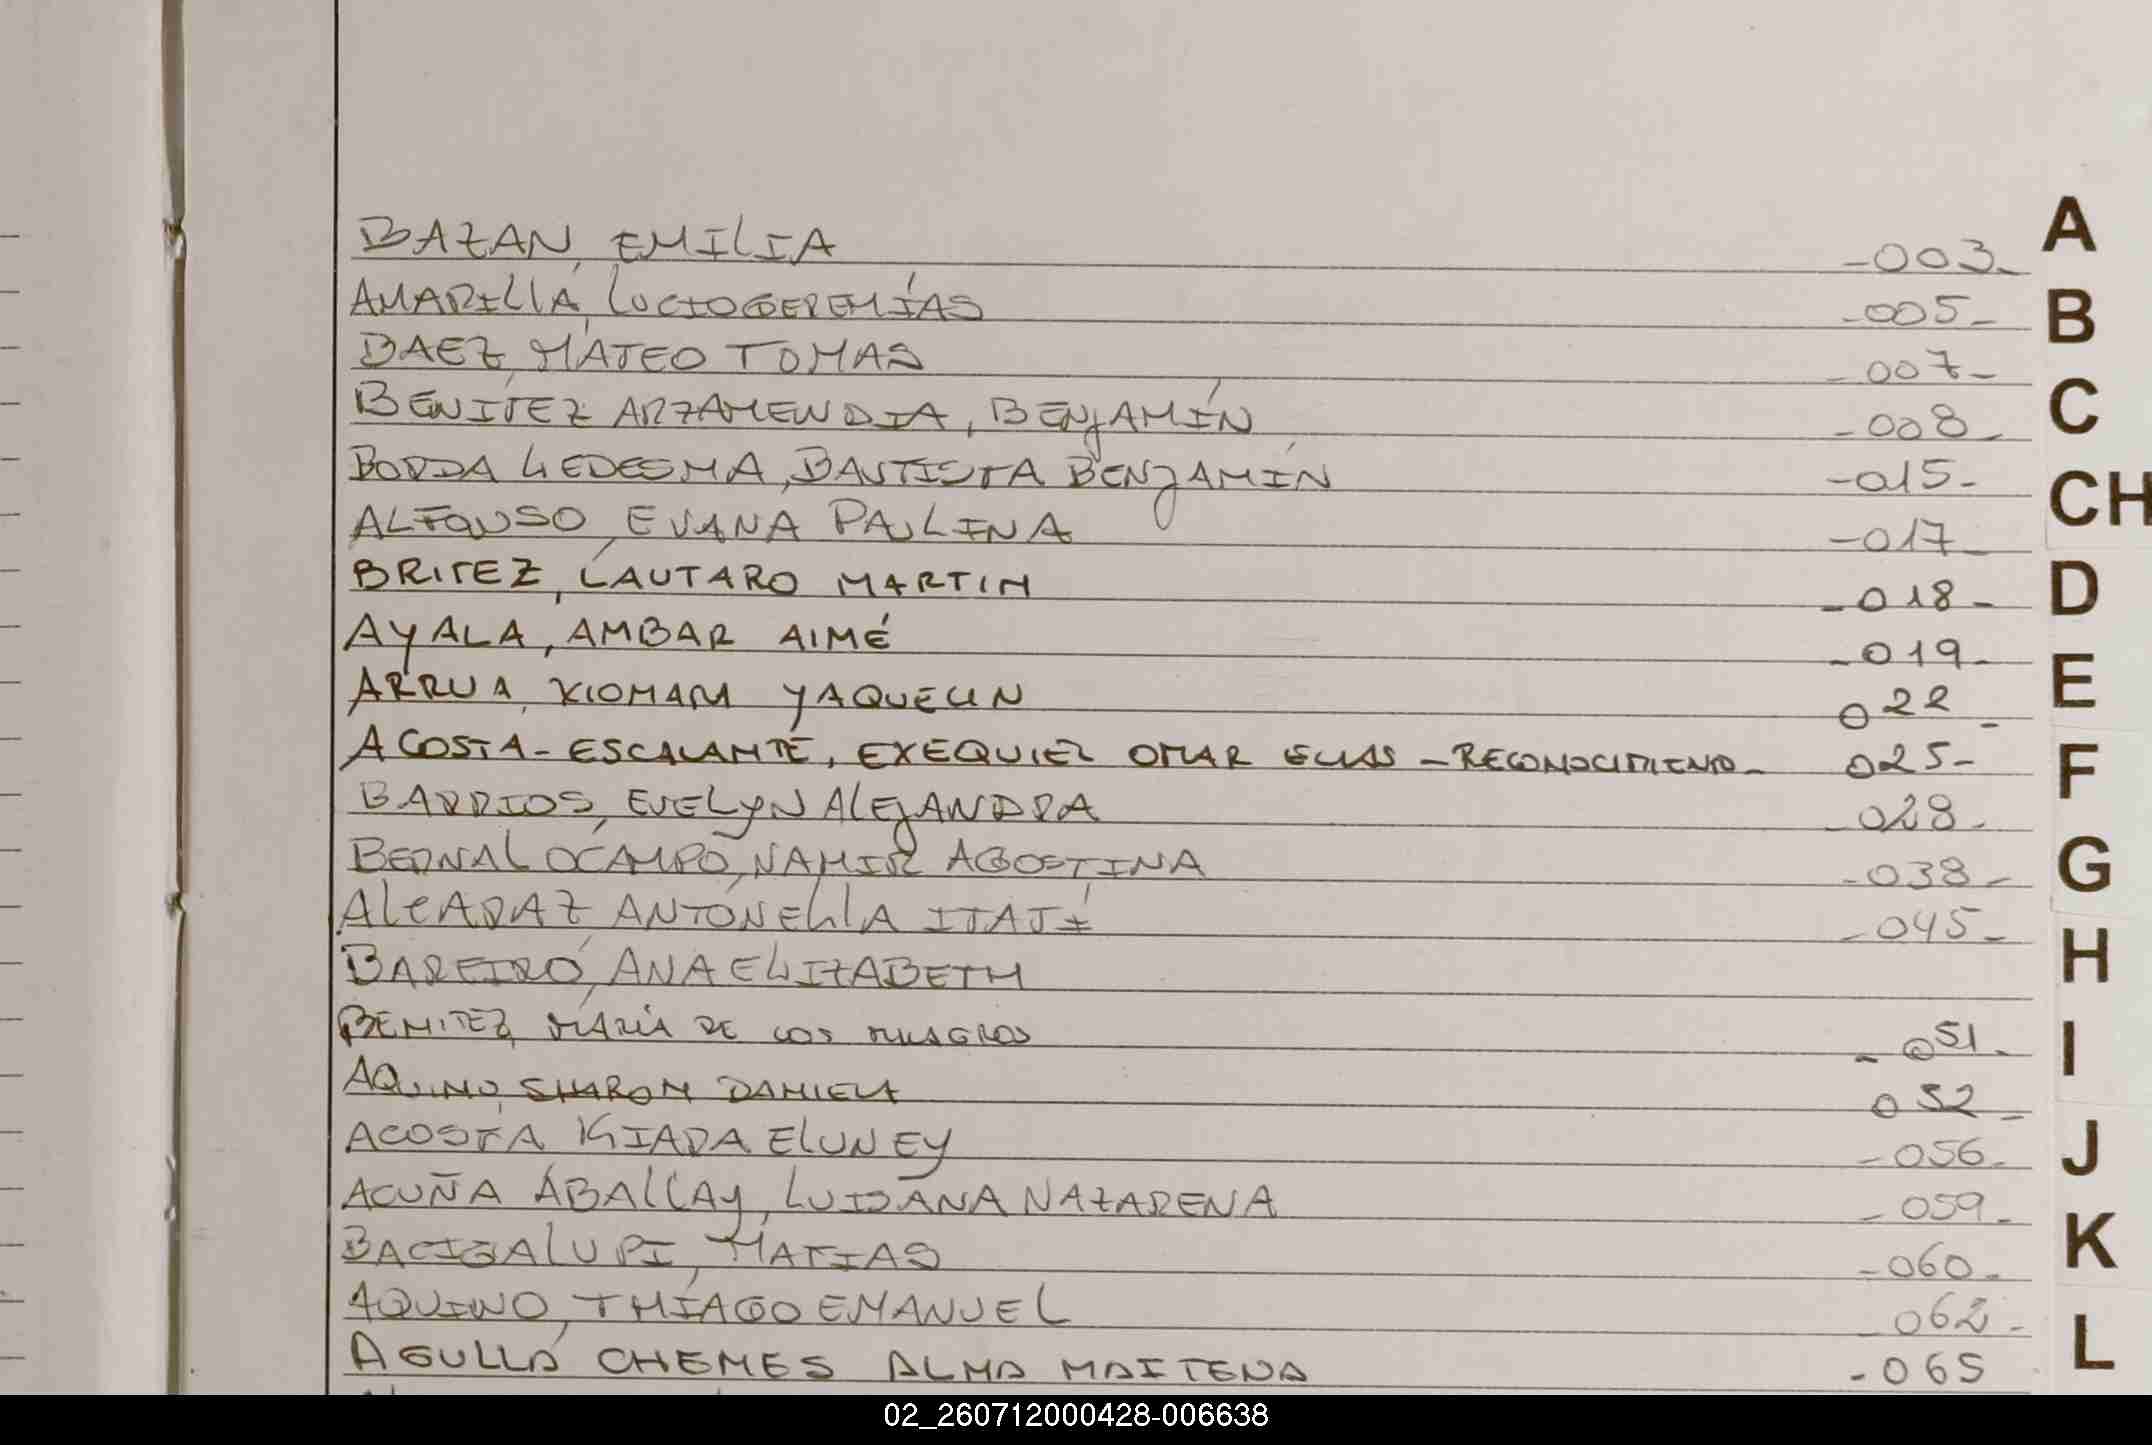 BAZAN, EMILIA -003-
AMARILLA, LUCIO GEREMÍAS -005-
BAEZ, MATEO TOMAS -007-
BENITEZ ARZAMENDIA, BENJAMÍN -008-
BORDA LEDESMA, BAUTISTA BENJAMÍN -015-
ALFONSO, EVANA PAULINA -017-
BRITEZ, LAUTARO MARTIN -018-
AYALA, AMBAR AIMÉ -019-
ARRUA, XIOMARA YAQUELIN 022-
ACOSTA-ESCALANTE, EXEQUIEL OMAR ELIAS -RECONOCIMIENTO- 025-
BARRIOS, EVELYN ALEJANDRA -028-
BERNAL OCAMPO, NAHIR AGOSTINA -038-
ALCARAZ ANTONELLA ITATÍ -045-
BAREIRO, ANA ELIZABETH
BENITEZ, MARÍA DE LOS MILAGROS -051-
AQUINO, SHARON DANIELA 052-
ACOSTA KIARA ELUNEY -056-
ACUÑA ABALLAY, LUISANA NAZARENA -059-
BACIGALUPI, MATIAS -060-
AQUINO, THIAGO EMANUEL -062-
AGULLA CHEMES ALMA MAITENA -065
A
B
C
CH
D
E
F
G
H
I
J
K
L
02_260712000428-006638